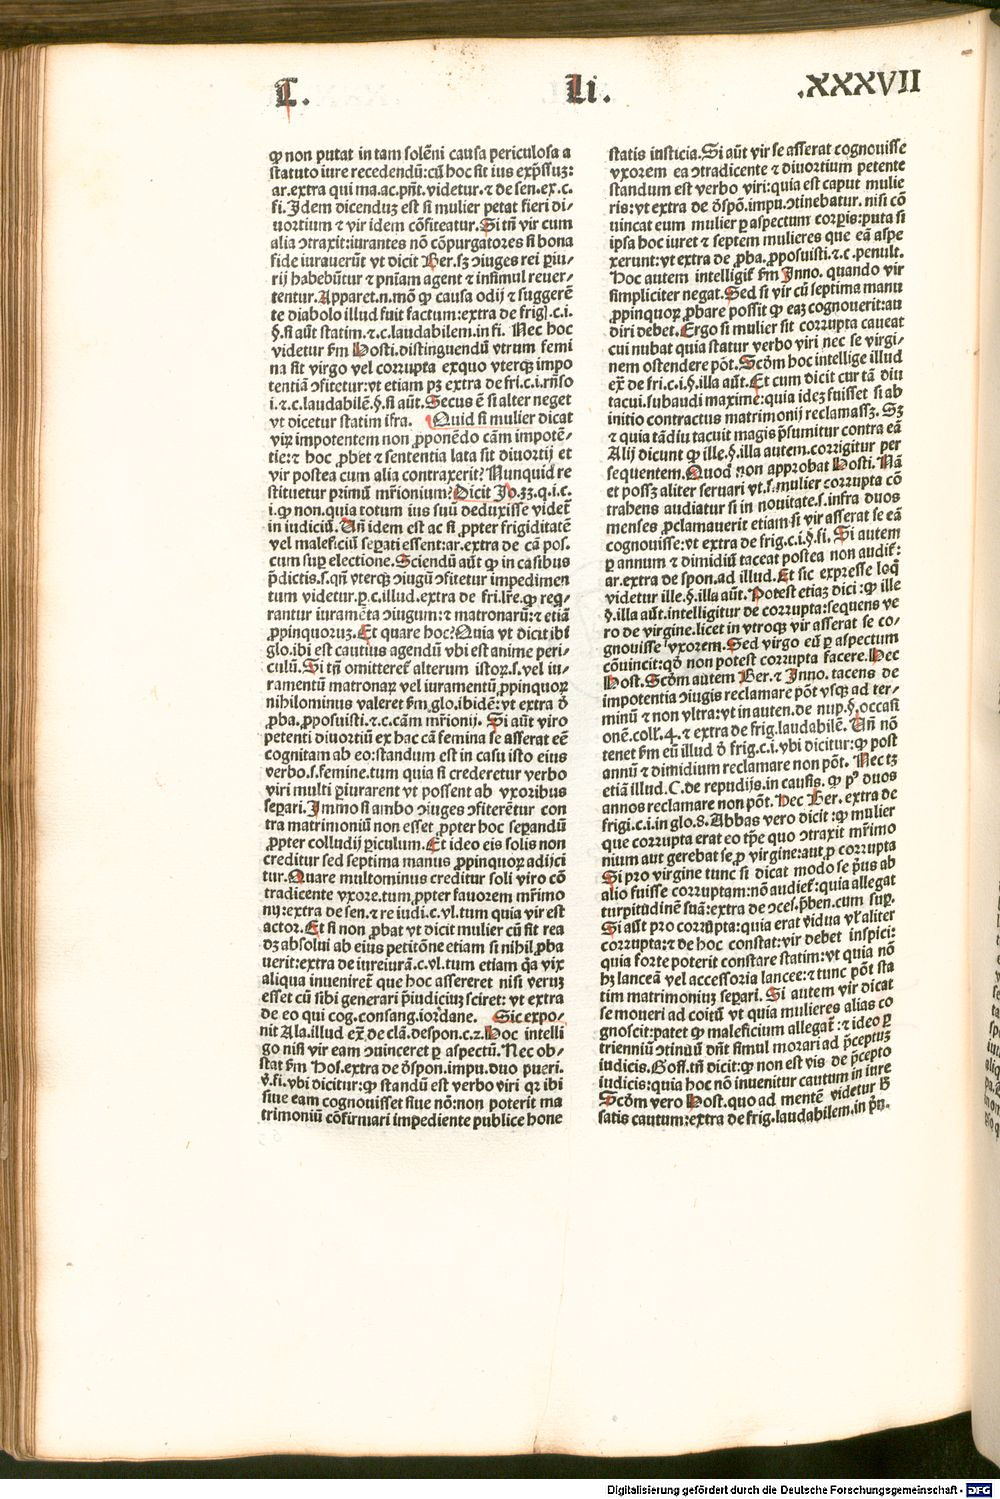 L.
Li.
.XXXVII
ꝙ non putat in tam solēni causa periculosa a
statuto iure recedendū:cū hoc sit ius exp̄ssuꝫ:
ar.extra qui ma.ac.pn̄t.videtur.⁊ de sen.ex.c.
fi.Idem dicenduꝫ est si mulier petat fieri di/
uortium ⁊ vir idem cōfiteatur.Si tn̄ vir cum
alia ↄtraxit:iurantes nō cōpurgatores si bona
fide iurauerūt vt dicit Ber.sꝫ ↄiuges rei ꝑiu/
rij habebūtur ⁊ pn̄iam agent ⁊ insimul reuer/
tentur.Apparet.n.mō ꝙ causa odij ⁊ suggerē
te diabolo illud fuit factum:extra de frig.c.i.
§.si aūt statim.⁊.c.laudabilem.in fi. Nec hoc
videtur ẜm Hosti.distinguendū vtrum femi
na sit virgo vel corrupta exquo vterqꝫ impo
tentiā ↄfitetur:vt etiam pꝫ extra de fri.c.i.rn̄so
i.⁊.c.laudabilē.§.si aūt.Secus ē si alter neget
vt dicetur statim ifra. Quid si mulier dicat
viꝝ impotentem non ꝓponēdo cām impotē/
tie:⁊ hoc ꝓbet ⁊ sententia lata sit diuortij et
vir postea cum alia contraxerit? Nunquid re
stituetur primū mr̄ionium?Dicit Io.33.q.i.c.
i.ꝙ non.quia totum ius suū deduxisse videt̄
in iudiciū.Un̄ idem est ac si ꝓpter frigiditatē
vel maleficiū seꝑati essent:ar.extra de cā pos.
cum suꝑ electione.Sciendū aūt ꝙ in casibus
p̄dictis.s.qn̄ vterqꝫ ↄiugū ↄfitetur impedimen
tum videtur.ꝑ c.illud.extra de fri.lr̄e.ꝙ reꝗ/
rantur iurameta ↄiugum:⁊ matronarū:⁊ etiā
ꝓpinquoruꝫ.Et quare hoc?Quia vt dicit ibi
glo.ibi est cautius agendū vbi est anime peri/
culū.Si tn̄ omitteret̄ alterum istoꝝ.s.vel iu/
ramentū matronaꝝ vel iuramentū ꝓpinquoꝝ
nihilominus valeret ẜm glo.ibidē:vt extra ð
ꝓba.ꝓposuisti.⁊.c.cām mr̄ionij. Si aūt viro
petenti diuortiū ex hac cā femina se asserat eē
cognitam ab eo:standum est in casu isto eius
verbo.s.femine.tum quia si crederetur verbo
viri multi ꝑiurarent vt possent ab vxoribus
seꝑari.Immo si ambo ↄiuges ↄfiterētur con
tra matrimoniū non esset ꝓpter hoc seꝑandū
ꝓpter colludij ꝑiculum.Et ideo eis solis non
creditur sed septima manus ꝓpinquoꝝ adijci
tur.Quare multominus creditur soli viro cō
tradicente vxore.tum ꝓpter fauorem mr̄imo
nij:extra de sen.⁊ re iudi.c.vl.tum quia vir est
actor.Et si non ꝓbat vt dicit mulier cū sit rea
dꝫ absolui ab eius petitōne etiam si nihil ꝓba
uerit:extra de iureiurā.c.vl.tum etiam q̇a vix
aliqua inueniret̄ que hoc assereret nisi veruꝫ
esset cū sibi generari p̄iudiciuꝫ sciret: vt extra
de eo qui cog.consang.iordane. Sic expo/
nit Ala.illud ex̄ de clā.despon.c.2.Hoc intelli
go nisi vir eam ↄuinceret ꝑ aspectū.Nec ob/
stat ẜm Hos.extra de ðspon.impu.duo pueri.
ꝟ.fi.vbi dicitur:ꝙ standū est verbo viri qꝛ ibi
siue eam cognouisset siue nō:non poterit ma
trimoniū cōfirmari impediente publice hone
statis iusticia.Si aūt vir se asserat cognouisse
vxorem ea ↄtradicente ⁊ diuortium petente
standum est verbo viri:quia est caput mulie
ris:vt extra de ðspō.impu.ↄtinebatur. nisi cō
uincat eum mulier ꝑ aspectum corꝑis:puta si
ipsa hoc iuret ⁊ septem mulieres que eā aspe
xerunt:vt extra de ꝓba.ꝓposuisti.⁊.c.penult.
Hoc autem intelligit̄ ẜm Inno. quando vir
simpliciter negat.Sed si vir cū septima manu
ꝓpinquoꝝ ꝓbare possit ꝙ eaꝫ cognouerit:au
diri debet.Ergo si mulier sit corrupta caueat
cui nubat quia statur verbo viri nec se virgi/
nem ostendere pōt.Scðm hoc intellige illud
ex̄ de fri.c.i.§.illa aūt.Et cum dicit cur tā diu
tacui.subaudi maxime:quia ideꝫ fuisset si ab
initio contractus matrimonij reclamassꝫ. Sꝫ
⁊ quia tādiu tacuit magis p̄sumitur contra eā
Alij dicunt ꝙ ille.§.illa autem.corrigitur per
sequentem.Quod non approbat Hosti. Nā
et possꝫ aliter seruari vt.s.mulier corrupta cō
trahens audiatur si in nouitate.s.infra duos
menses ꝓclamauerit etiam si vir asserat se eā
cognouisse:vt extra de frig.c.i.§.fi. Si autem
ꝑ annum ⁊ dimidiū taceat postea non audit̄:
ar.extra de spon.ad illud.Et sic expresse loq̄
videtur ille.§.illa aūt.Potest etiaꝫ dici:ꝙ ille
§.illa aūt.intelligitur de corrupta:sequens ve
ro de virgine.licet in vtroqꝫ vir asserat se co/
gnouisse vxorem.Sed virgo eū ꝑ aspectum
cōuincit:qð non potest corrupta facere.Hec
Host.Scðm autem Ber.⁊ Inno. tacens de
impotentia ↄiugis reclamare pōt vsqꝫ ad ter/
minū ⁊ non vltra:vt in auten.de nup.§.occasi
onē.coll.4.⁊ extra de frig.laudabilē. Un̄ nō
tenet ẜm eū illud ð frig.c.i.vbi dicitur:ꝙ post
annū ⁊ dimidium reclamare non pōt. Nec tꝫ
etiā illud.C.de repudijs.in causis. ꝙ pꝰ duos
annos reclamare non pōt.Hec Ber. extra de
frigi.c.i.in glo.8.Abbas vero dicit:ꝙ mulier
que corrupta erat eo tp̄e quo ↄtraxit mr̄imo
nium aut gerebat se ꝓ virgine:aut ꝓ corrupta
Si pro virgine tunc si dicat modo se p̄us ab
alio fuisse corruptam:nō audiet̄:quia allegat
turpitudinē suā:extra de ↄces.p̄ben.cum suꝑ.
Si aūt pro corrupta:quia erat vidua vl̄ aliter
corrupta:⁊ de hoc constat:vir debet inspici:
quia forte poterit constare statim:vt quia nō
hꝫ lanceā vel accessoria lancee:⁊ tunc pōt sta
tim matrimoniuꝫ seꝑari. Si autem vir dicat
se moueri ad coitū vt quia mulieres alias co
gnoscit:patet ꝙ maleficium allegat̄:⁊ ideo ꝑ
trienniū ↄtinuū dn̄t simul morari ad p̄ceptuꝫ
iudicis.Goff.tn̄ dicit:ꝙ non est vis de p̄cepto
iudicis:quia hoc nō inuenitur cautum in iure
Scðm vero Host.quo ad mentē videtur
satis cautum:extra de frig.laudabilem.in pn̄.
Digitalisierung gefördert durch die Deutsche Forschungsgemeinschaft - DFG